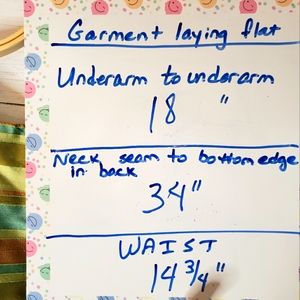 Garment laying flat
Underarm to underarm
18 "
Neck seam to bottom edge
in back
34"
WAIST
14 3/4"